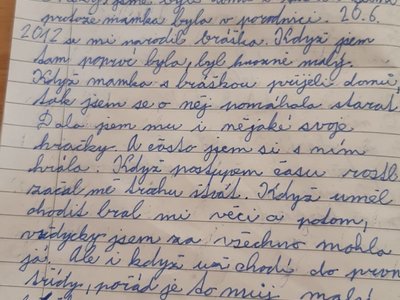 jsme byli doma s
protože mamka byla v porodnici. 20.6.
2012 se mi narodil bráška. Když jsem
tam poprvé byla, byl hrozně malý.
Když mamka s bráškou přijeli domů,
tak jsem se o něj pomáhala starat.
Dala jsem mu i nějaké svoje
hračky. A často jsem si s ním
hrála. Když postupem času rostl
začal mě trochu štvát. Když uměl
chodit bral mi věci a potom,
vždycky jsem za všechno mohla
já. Ale i když už chodí do první
třídy, pořád je to můj malý